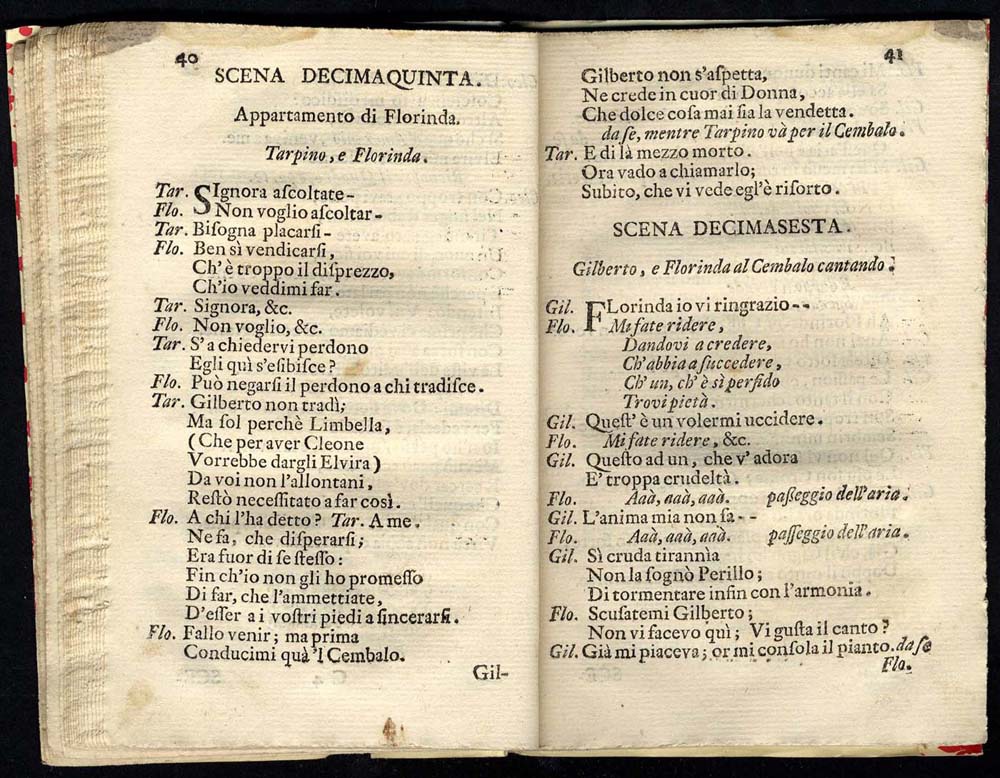 40
SCENA DECIMAQUINTA.
Appartamento di Florinda.
Tarpino, e Florinda.
Tar. SIgnora aſcoltate-
Flo. Non voglio aſcoltar-
Tar. Biſogna placarſi-
Flo. Ben sì vendicarſi,
Ch'è troppo il diſprezzo,
Ch'io veddimi far.
Tar. Signora, &c.
Flo. Non voglio, &c.
Tar. S'a chiedervi perdono
Egli quì s'eſibiſce?
Flo. Può negarſi il perdono a chi tradiſce.
Tar. Gilberto non tradì;
Ma ſol perchè Limbella,
(Che per aver Cleone
Vorrebbe dargli Elvira)
Da voi non l'allontani,
Reſtò neceſſitato a far così.
Flo. A chi l'ha detto? Tar. A me.
Ne fa, che diſperarſi;
Era fuor di ſe ſteſſo:
Fin ch'io non gli ho promeſſo
Di far, che l'ammettiate,
D'eſſer a i voſtri piedi a ſincerarſi.
Flo. Fallo venir; ma prima
Conducimi quà 'l Cembalo.
Gil-
41
Gilberto non s'aſpetta,
Ne crede in cuor di Donna,
Che dolce coſa mai ſia la vendetta.
da ſe, mentre Tarpino và per il Cembalo.
Tar. E di là mezzo morto.
Ora vado a chiamarlo;
Subito, che vi vede egl'è riſorto.
SCENA DECIMASESTA.
Gilberto, e Florinda al Cembalo cantando.
Gil. FLorinda io vi ringrazio--
Flo. Mi fate ridere,
Dandovi a credere,
Ch'abbia a ſuccedere,
Ch'un, ch'è sì perfido
Trovi pietà.
Gil. Queſt'è un volermi uccidere.
Flo. Mi fate ridere, &c.
Gil. Queſto ad un, che v'adora
E' troppa crudeltà.
Flo. Aaà, aaà, aaà. paſſeggio dell'aria.
Gil. L'anima mia non ſa--
Flo. Aaà, aaà, aaà. paſſeggio dell'aria.
Gil. Sì cruda tirannìa
Non la ſognò Perillo;
Di tormentare infin con l'armonia.
Flo. Scuſatemi Gilberto;
Non vi facevo quì; Vi guſta il canto?
Gil. Già mi piaceva; or mi conſola il pianto. da ſe
Flo.